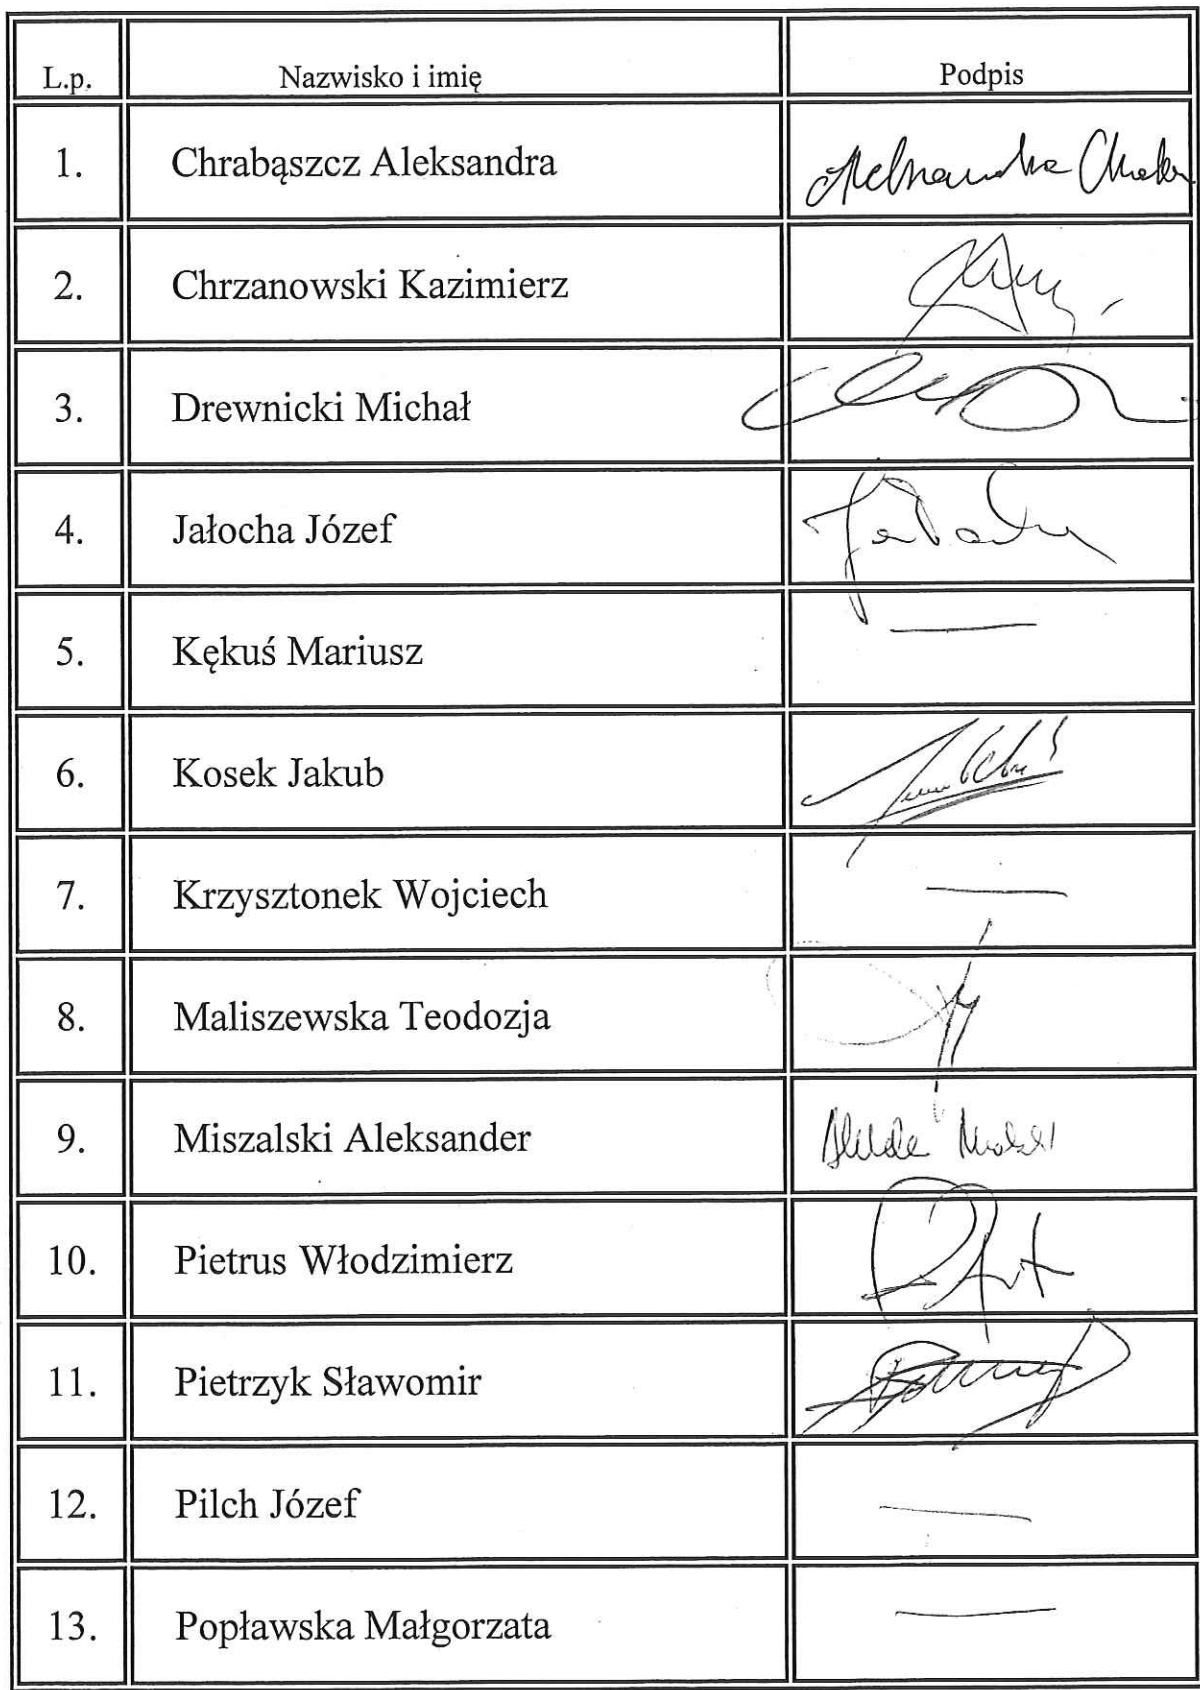 L.p. Nazwisko i imię Podpis
1. Chrabąszcz Aleksandra
2. Chrzanowski Kazimierz
3. Drewnicki Michał
4. Jałocha Józef
5. Kękuś Mariusz —
6. Kosek Jakub
7. Krzysztonek Wojciech —
8. Maliszewska Teodozja
9. Miszalski Aleksander
10. Pietrus Włodzimierz
11. Pietrzyk Sławomir
12. Pilch Józef —
13. Popławska Małgorzata —